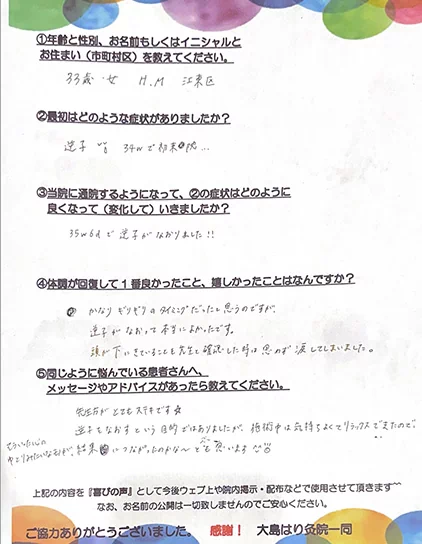 ①年齢と性別、お名前もしくはイニシャルと
お住まい（市町村区）を教えてください。
33歳・女 H.M 江東区
②最初はどのような症状がありましたか？
逆子 34wで初来院...
③当院に通院するようになって、②の症状はどのように
良くなって（変化して）いきましたか？
35w6dで逆子がなおりました!!
④体調が回復して１番良かったこと、嬉しかったことはなんですか？
かなりギリギリのタイミングだったと思うのですが、
逆子がなおって本当によかったです。
頭が下にきていることを先生と確認した時は思わず涙してしまいました。
⑤同じように悩んでいる患者さんへ、
メッセージやアドバイスがあったら教えてください。
先生方がとてもステキです☆
逆子をなおすという目的ではありましたが、施術中は気持ちよくてリラックスできたので、
結果につながったのかな〜とも思います
上記の内容を『喜びの声』として今後ウェブ上や院内掲示・配布などで使用させて頂きます^^
なお、お名前の公開は一切致しませんのでご安心ください。
ご協力ありがとうございました。 感謝！ 大島はり灸院一同